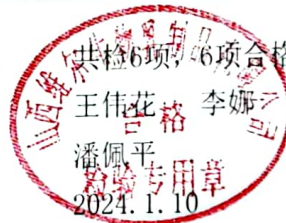 共检6项, 6项合格
王伟花 李娜
潘佩平
2024.1.10
合格
检验专用章